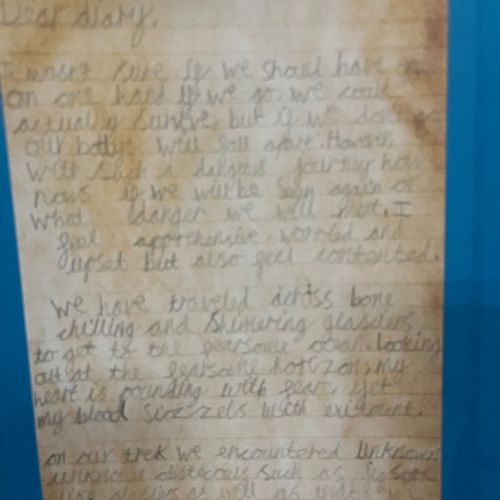 Dear diary,
I wasn't sure if we should have
on one hand if we go we could
actually survive, but if we don't go
our bottys will fall apart. However,
with such a dangrus journey how
nows if we will be seen again or
what danger we will meet. I
feel apprehensive, worried and
upset but also feel contented.
We have traveled across bone
chilling and shimering glasciers
to get to the fearsome ocean. Looking
out at the fearsome horizon, my
heart is pounding with fear, yet
my blood sizzels with exitment.
on our trek we encountered unknown
unknown obstecouls such as jigsaw
like glaciers as well as